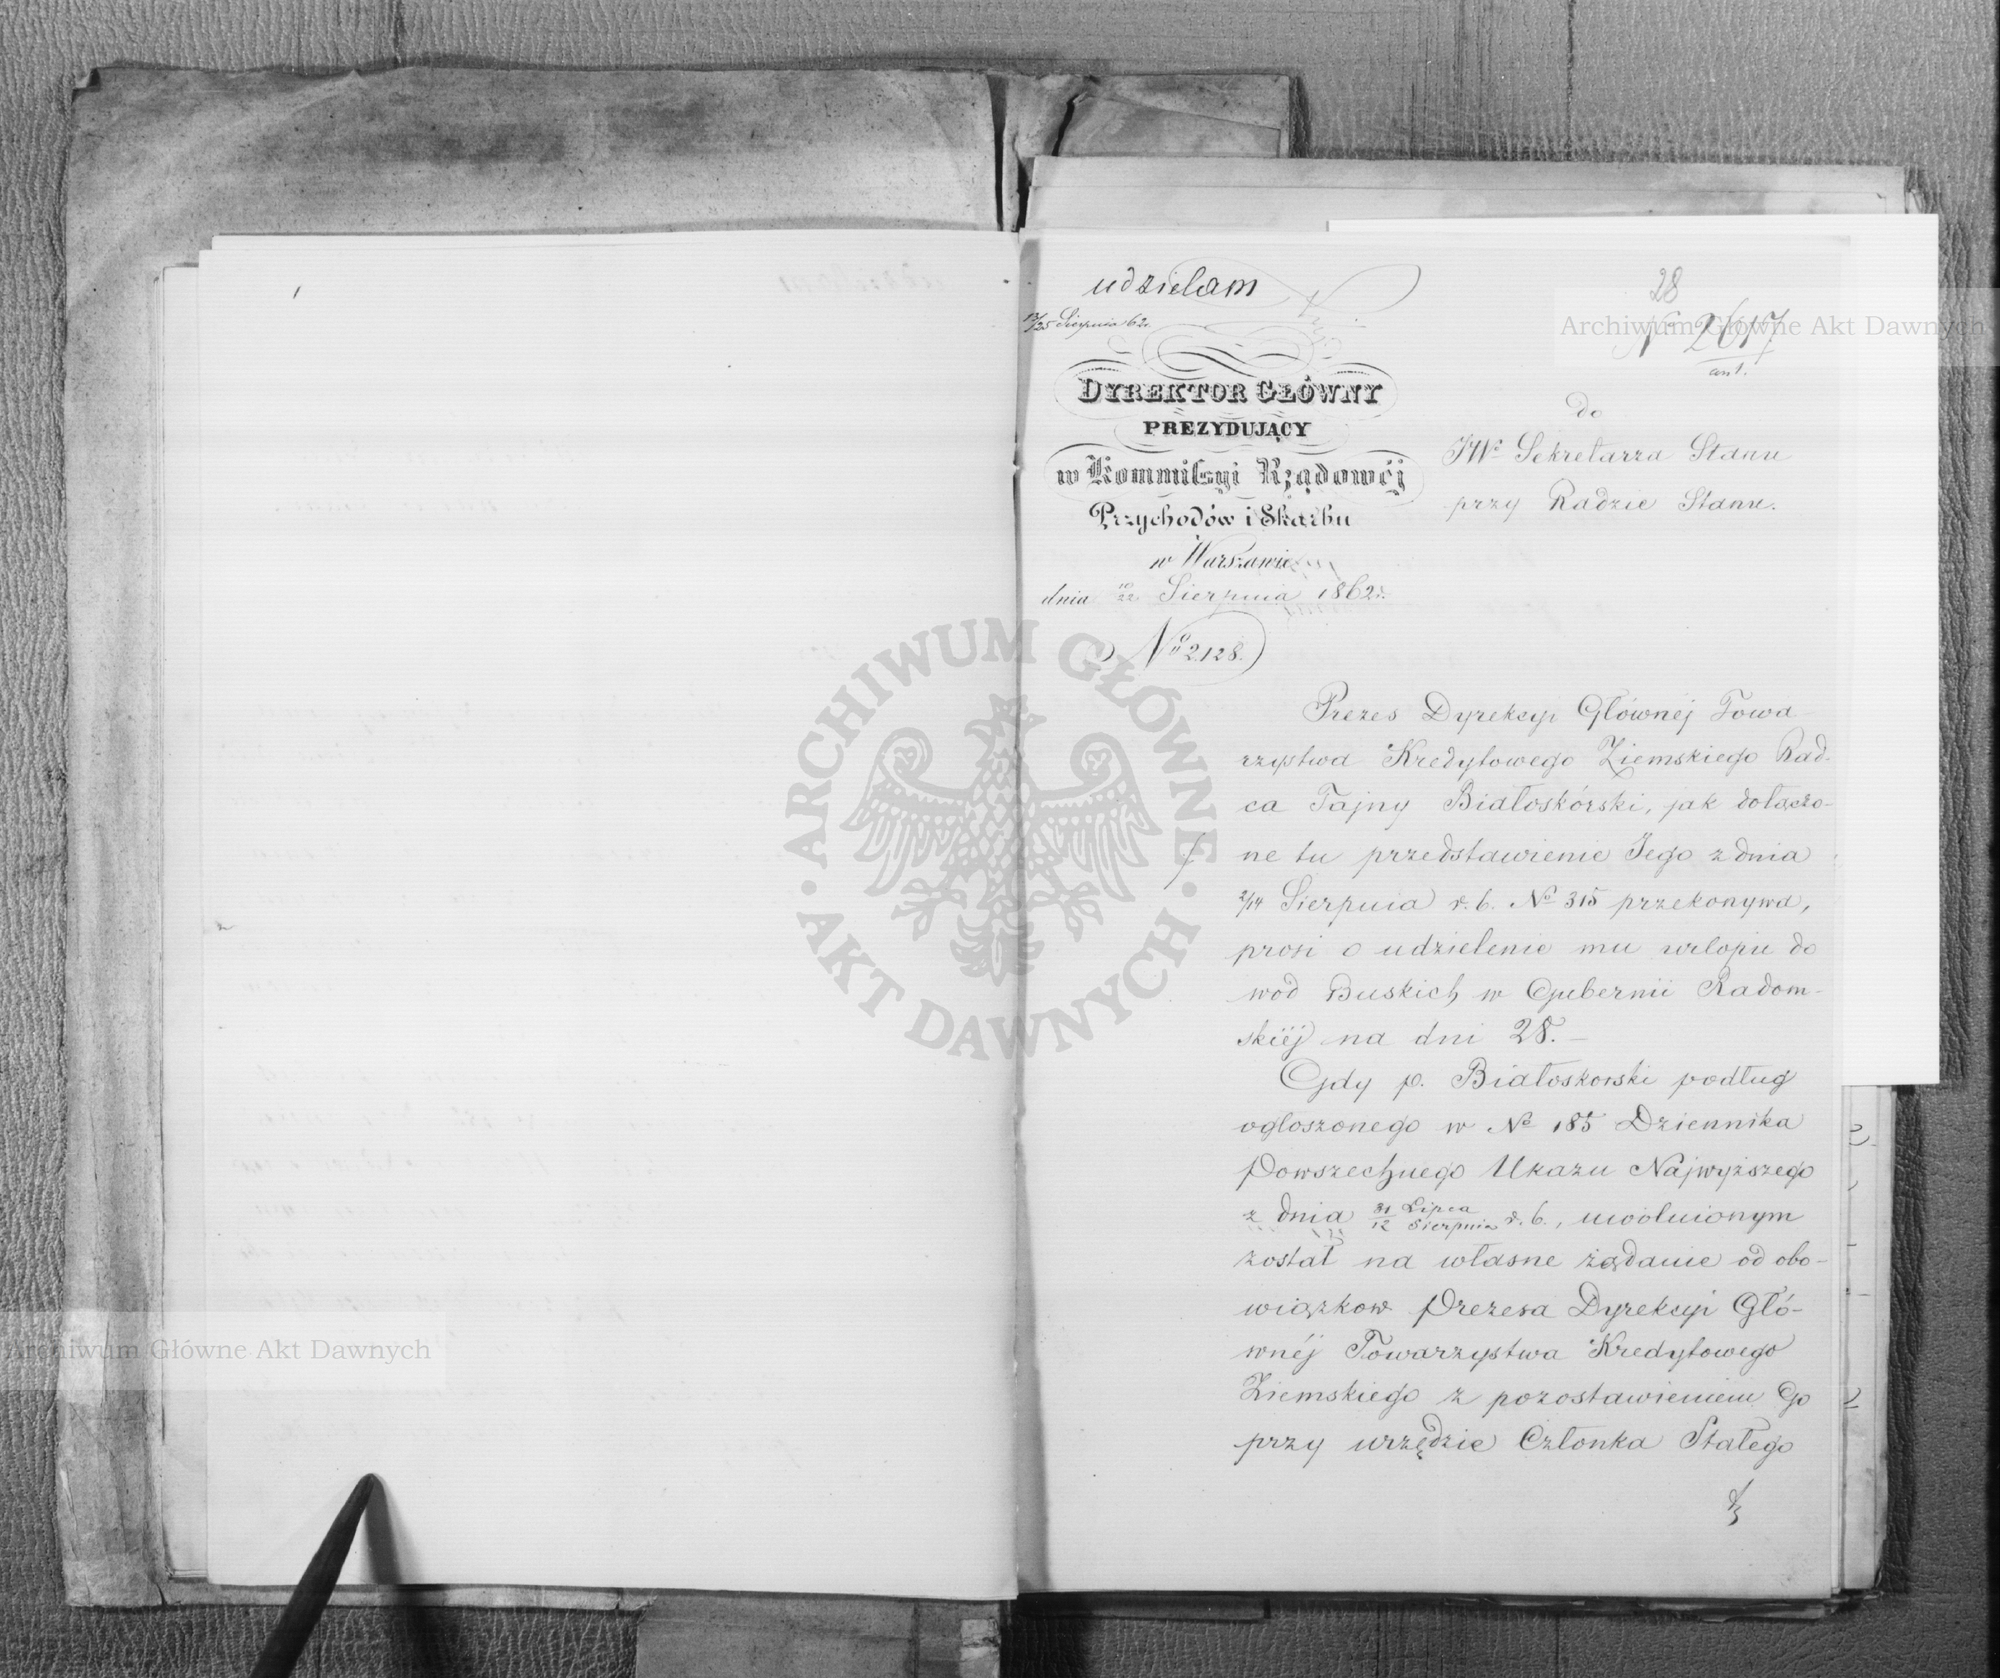 udzielam
13/25 Sierpnia 62r.
28
No 2617
DYREKTOR GŁÓWNY
PREZYDUJĄCY
w Kommissyi Rządowéj
Przychodów i Skarbu
w Warszawie
dnia 10/22 Sierpnia 1862r.
No 2128.
do
JWo Sekretarza Stanu
przy Radzie Stanu.
Prezes Dyrekcyi Głównéj Towa-
rzystwa Kredytowego Ziemskiego Rad-
ca Tajny Białoskórski, jak dołączo-
ne tu przedstawienie Jego z dnia
2/14 Sierpnia r. b. No 315 przekonywa,
prosi o udzielenie mu urlopu do
wod Buskich w Gubernii Radom-
skiéj na dni 28. –
Gdy p. Białoskorski podług
ogłoszonego w No 185 Dziennika
Powszechnego Ukazu Najwyższego
z dnia 31 Lipca/12 Sierpnia r. b., uwolnionym
został na własne żądanie od obo-
wiązkow Prezesa Dyrekcyi Głó-
wnéj Towarzystwa Kredytowego
Ziemskiego z pozostawieniem Go
przy urzędzie Członka Stałego
Archiwum Główne Akt Dawnych
ARCHIWUM GŁÓWNE • AKT DAWNYCH •
Archiwum Główne Akt Dawnych